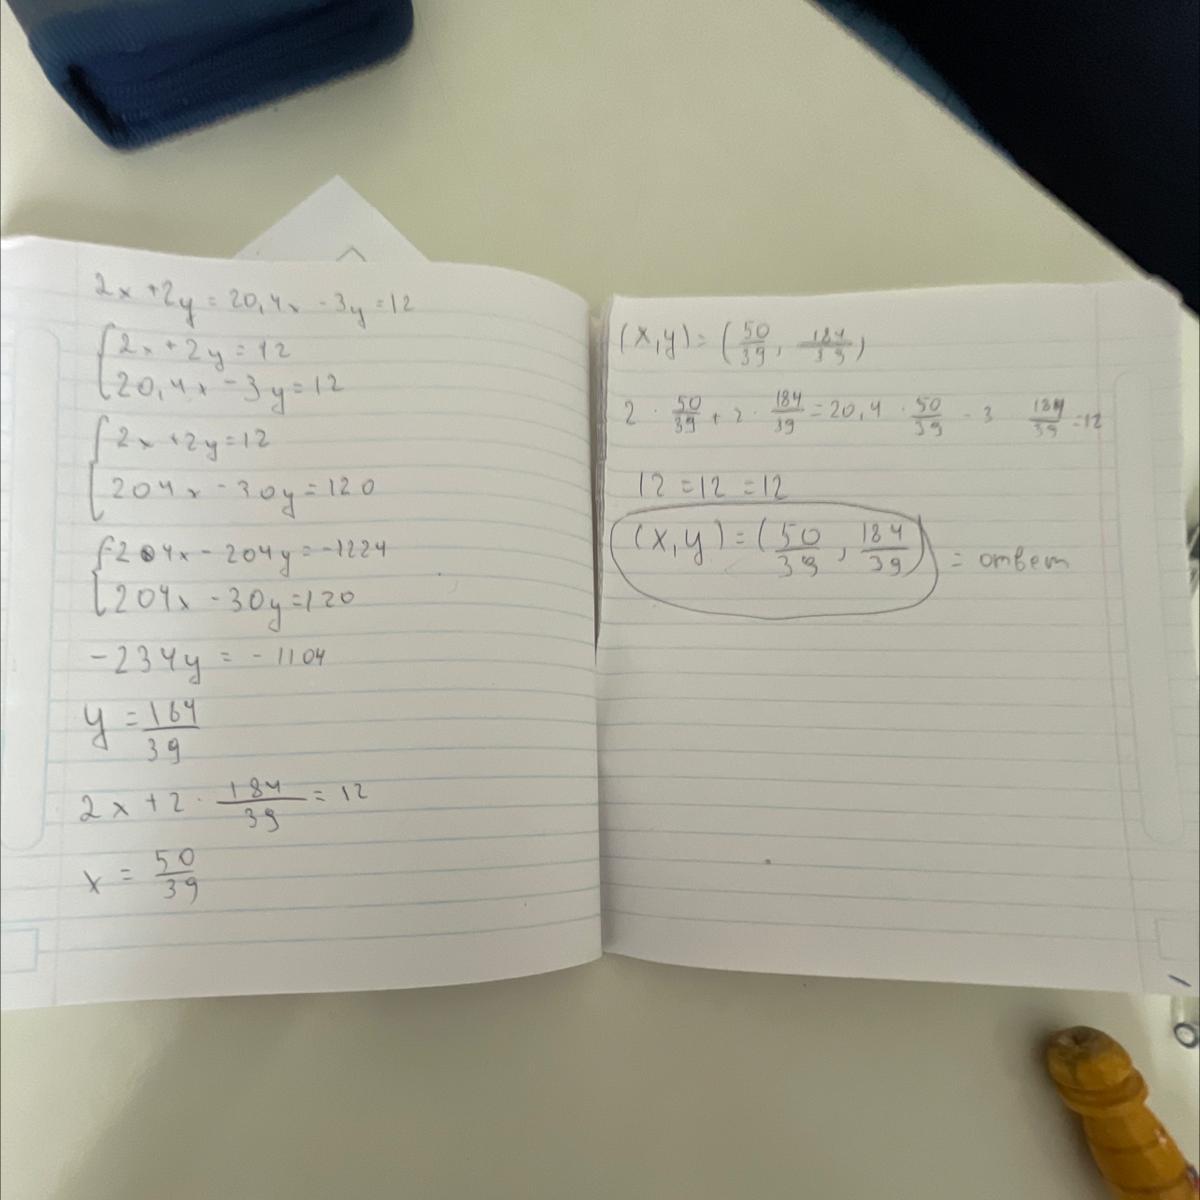 2x + 2y = 20,4x - 3y = 12
{2x + 2y = 12
{20,4x - 3y = 12
{2x + 2y = 12
{204x - 30y = 120
{-204x - 204y = -1224
{204x - 30y = 120
-234y = -1104
y = 164/39
2x + 2 · 184/39 = 12
x = 50/39
(x,y) = (50/39, 184/39)
2 · 50/39 + 2 · 184/39 = 20,4 · 50/39 - 3 184/39 = 12
12 = 12 = 12
(x,y) = (50/39, 184/39) = ответ